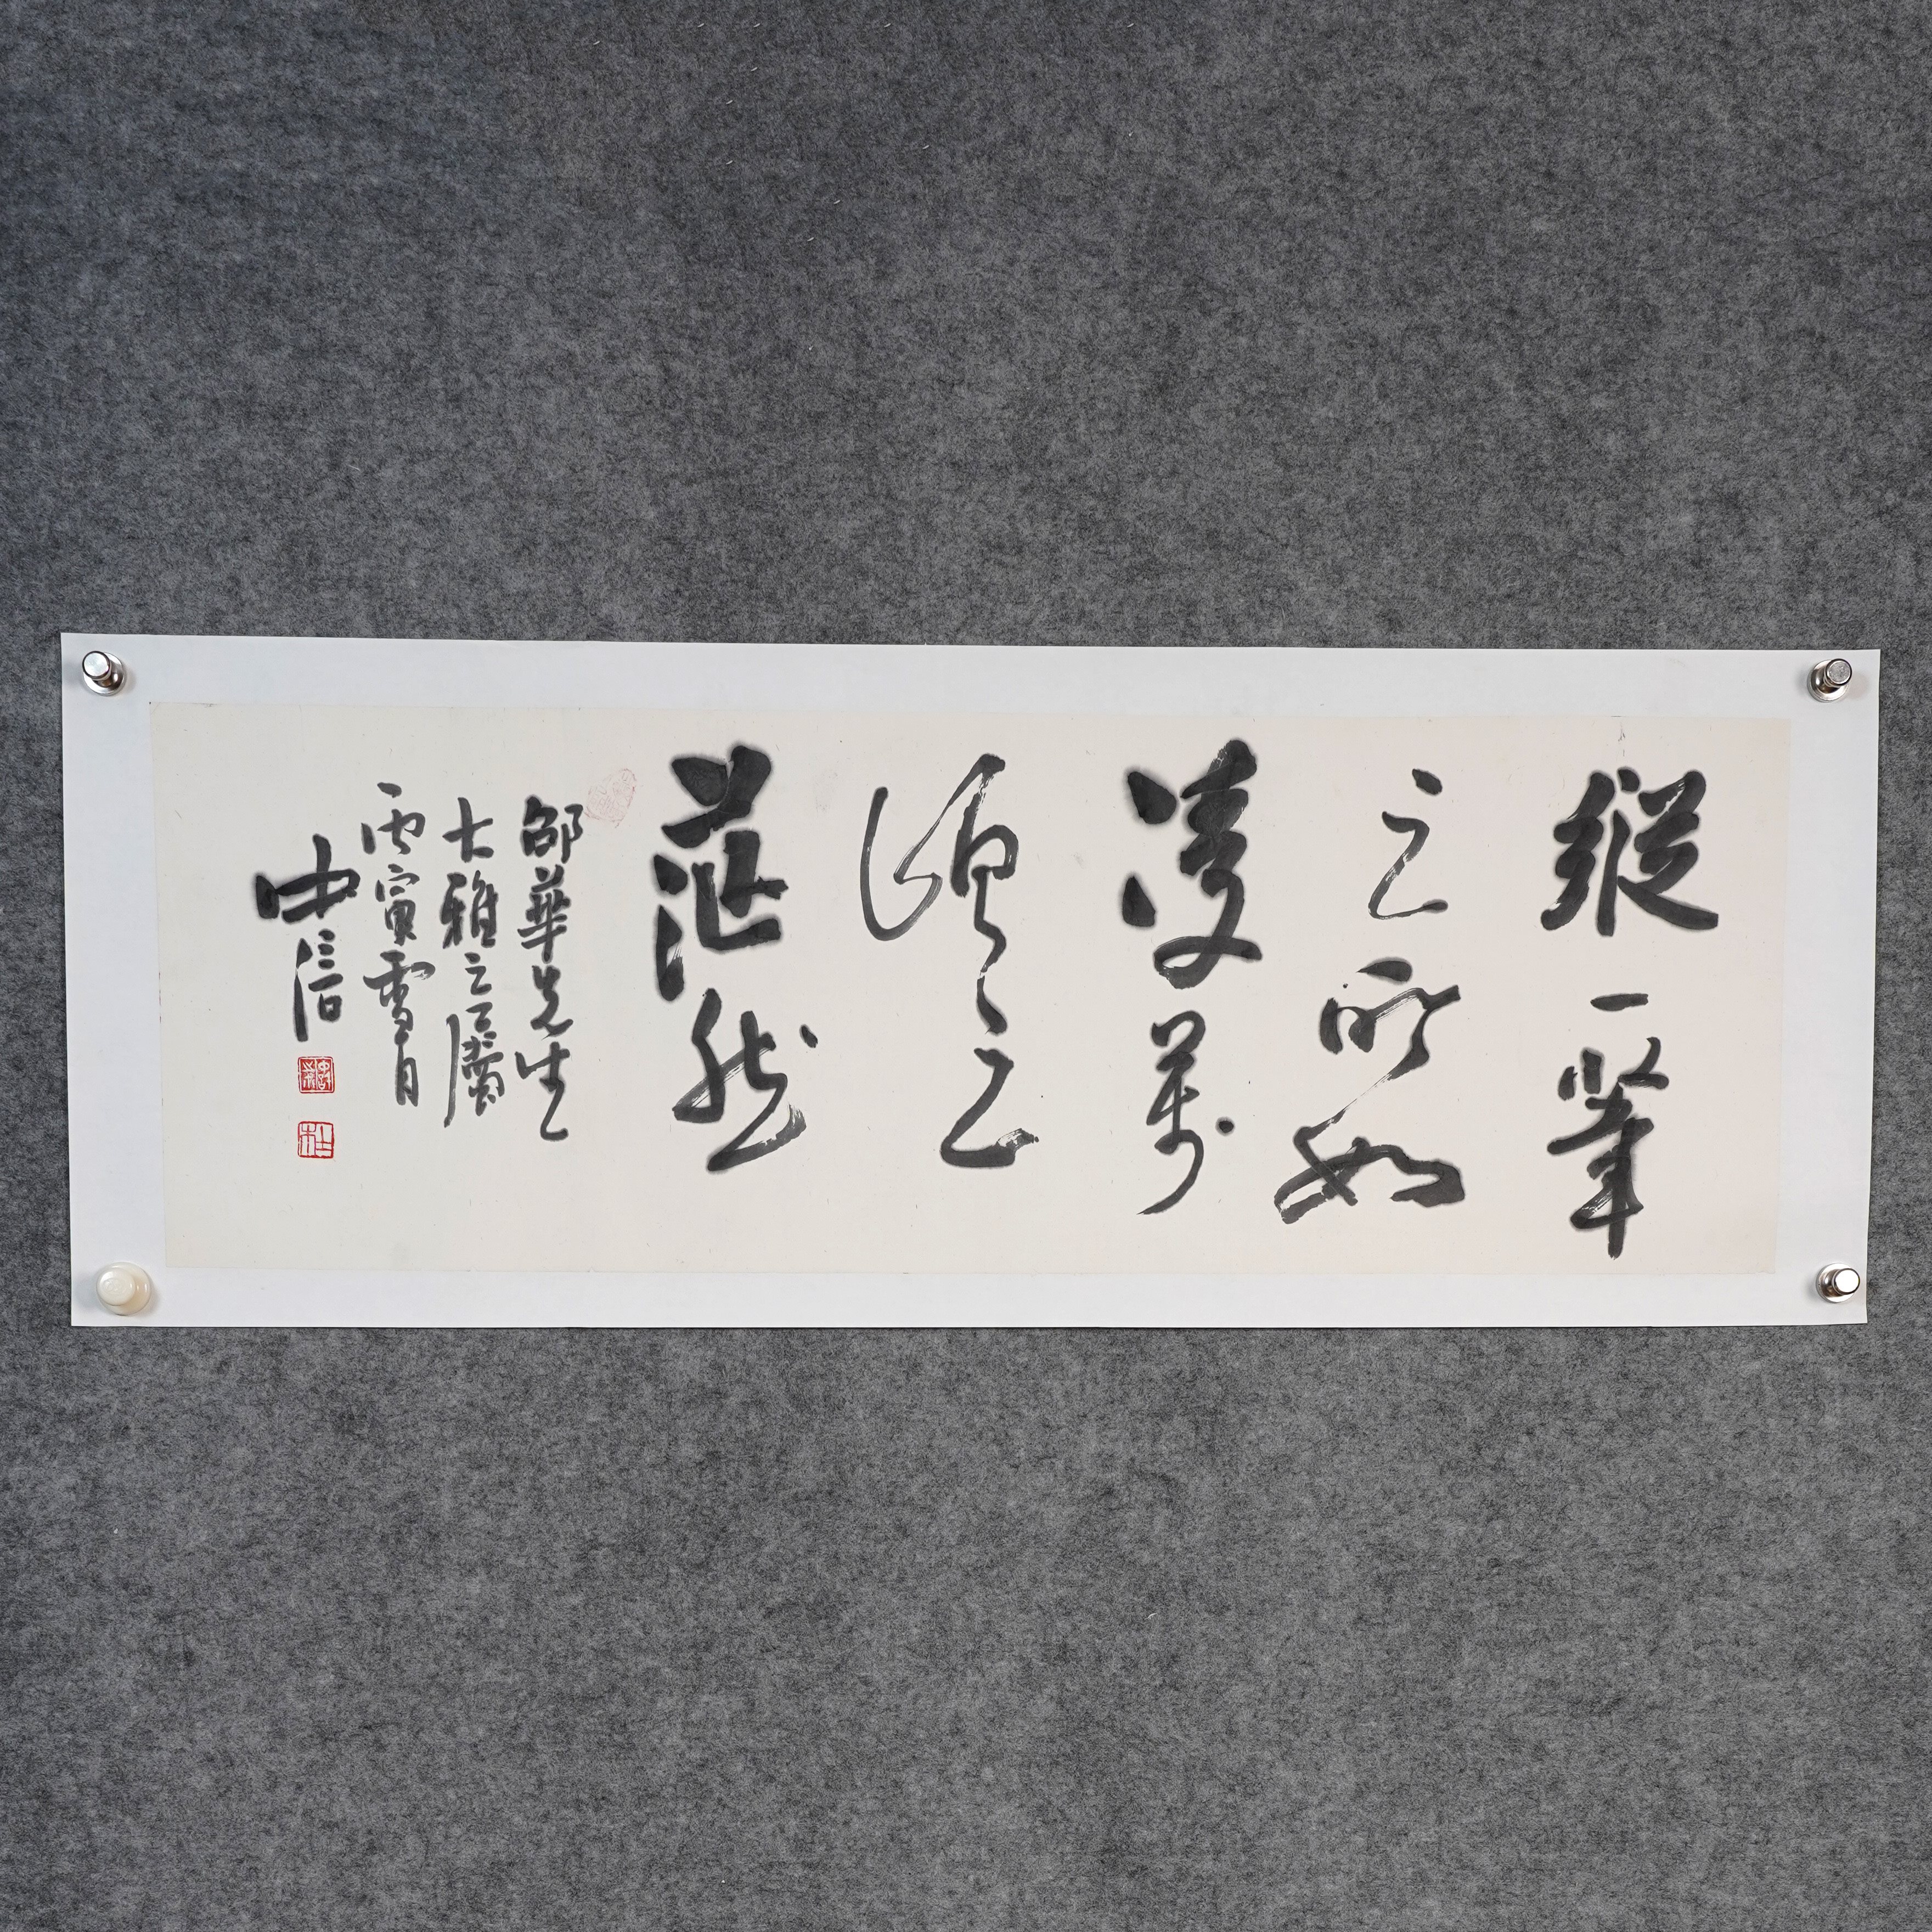 縱一葦
之所如
凌萬
頃之
茫然
邵華先生
大雅之屬
丙寅雪月
中信